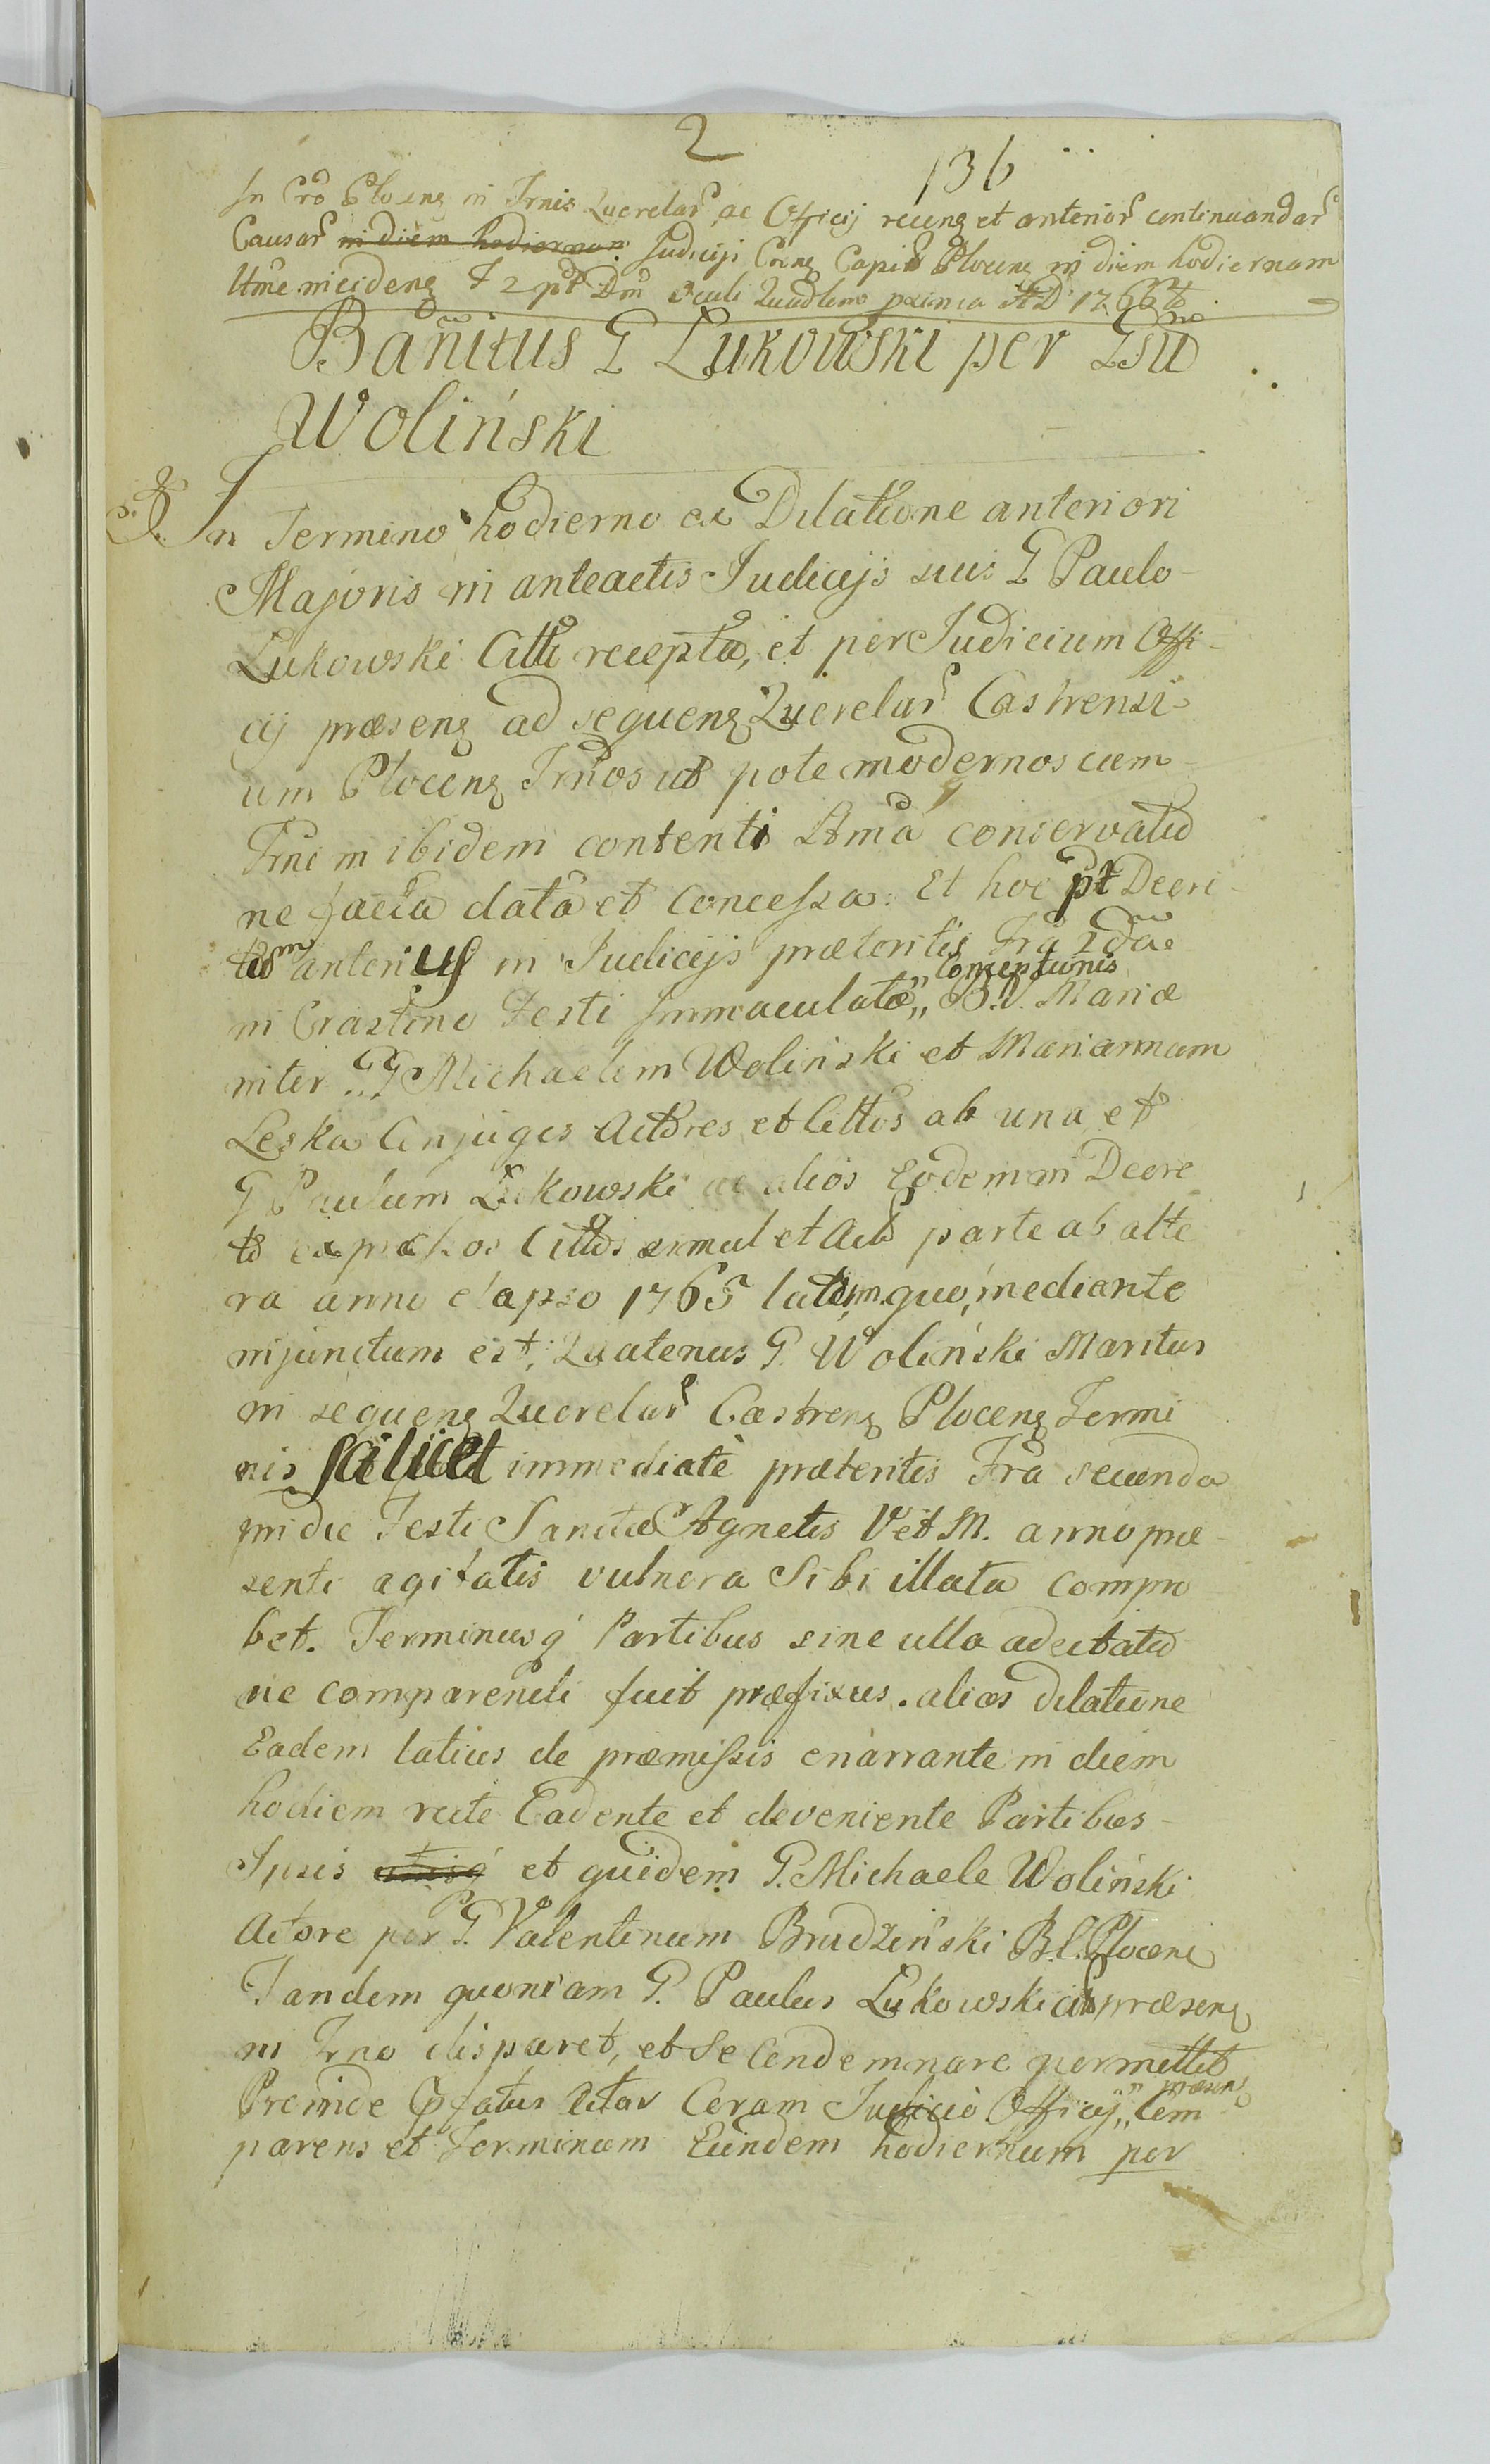 2
136
In Cro Plocens in Trnis Querelar ac Officij recens et anterior continuandar
Causar in diem hodiernam Judicij Crens Capit Plocens in diem hodiernam
Ittme incidens F 2 pt Dm Oculi Quadlem proxima AD 1766to
Bañitus G Łukowski per Gsu
Woliński
In Termino hodierno ex Dilatione anteriori
Majoris in anteactis Judicijs suis G Paulo
Łukowski Citto recepta, et per Judicium Offi-
cij præsens ad sequens Querelar Castrensi-
um Plocens Trnos ut pote modernos cum
Trni in ibidem contenti Atma conservatio
ne facta data et concessa. Et hoc pt Decre
tum anterius in Judicijs præteritis Fra 2da
in Crastino Festi Immaculatæ,, Conceptionis B.V. Mariæ
inter GG Michaelem Woliński et Mariannam
Leska Conjuges Actores et Cittos ab una et
G Paulum Łukowski ac alios Eodem in Decre
to expressos Cittos simul et Act parte ab alte
ra anno elapso 1765 latum, quo mediante
injunctum est, Quatenus G. Woliński Maritus
in sequens Querelar Castrens Plocens Termi
nis scilicet immediatè præteritis Fra secunda
in die Festi Sanctæ Agnetis V et M. anno præ-
senti agitatis vulnera Sibi illata compro
bet. Terminusq Partibus sine ulla adcitatio
ne comparendi fuit præfixus. alias dilatione
Eadem latius de præmissis enarrante in diem
hodiem rite Cadente et deveniente Partibus
Ipsis utrisq et quidem G. Michaele Woliński
Actore per G. Valentinum Brudziński B.C. Plocens
Tandem quoniam G. Paulus Łukowski Citt præsens
in Trno disparet, et Se Condemnare permittit
Proinde Præfatus Actor Coram Judicio Officij,, præsens Com
parens et Terminum Eundem hodiernum per